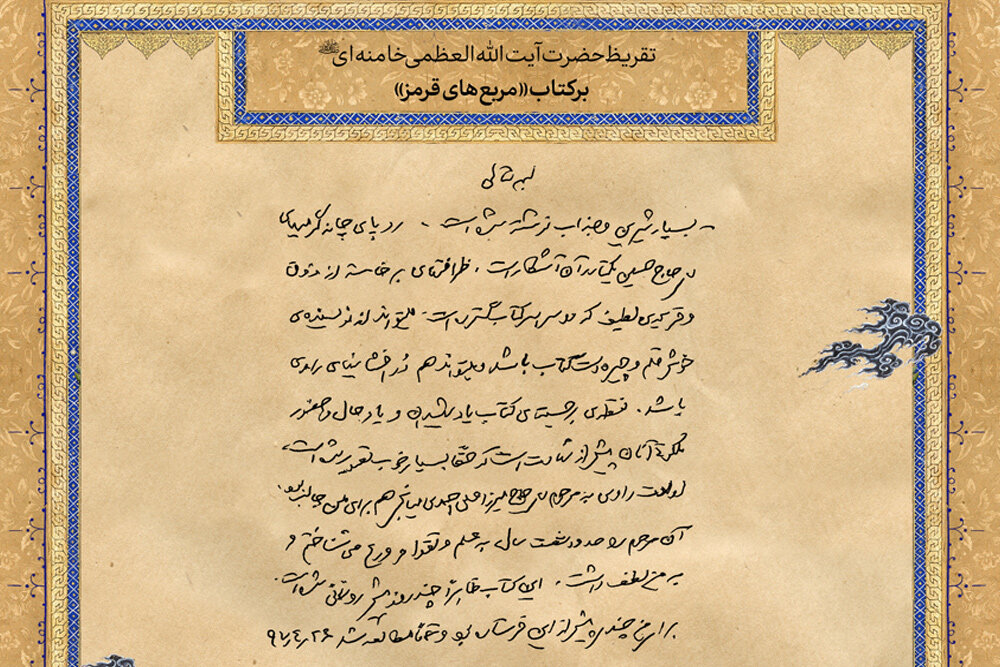 تقریظ حضرت آیت الله العظمی خامنه ای
بر کتاب «مربع های قرمز»
بسمه تعالی
- بسیار شیرین و جذاب نوشته شده است. رد پای چانه گرمیهای
حاج حسین یکتا در آن آشکار است. ظرافتهای برخاسته از ذوق
و قریحه‌ی لطیف که در سراسر کتاب گسترده است، میتواند از نویسنده‌ی
خوش قلم و چیره دست کتاب باشد و میتواند هم دُرافشانیهای راوی
باشد. نقطه‌ی برجسته‌ی کتاب یاد شهیدان و یاد حال و حضور
ملکوتی آنان پیش از شهادت است که حقّاً بسیار خوب تصویر شده است.
ارادت راوی به مرحوم حاج میرزا علی احمدی میانجی هم برای من جالب بود.
آن مرحوم را حدود شصت سال به علم و تقوا و ورع می شناختم و
به من لطف داشت. این کتاب ظاهراً چند روز پیش رونمائی شده است.
برای من چندی پیش از این فرستاده بود و تماماً مطالعه شد ۹۷٫۴٫۲۶